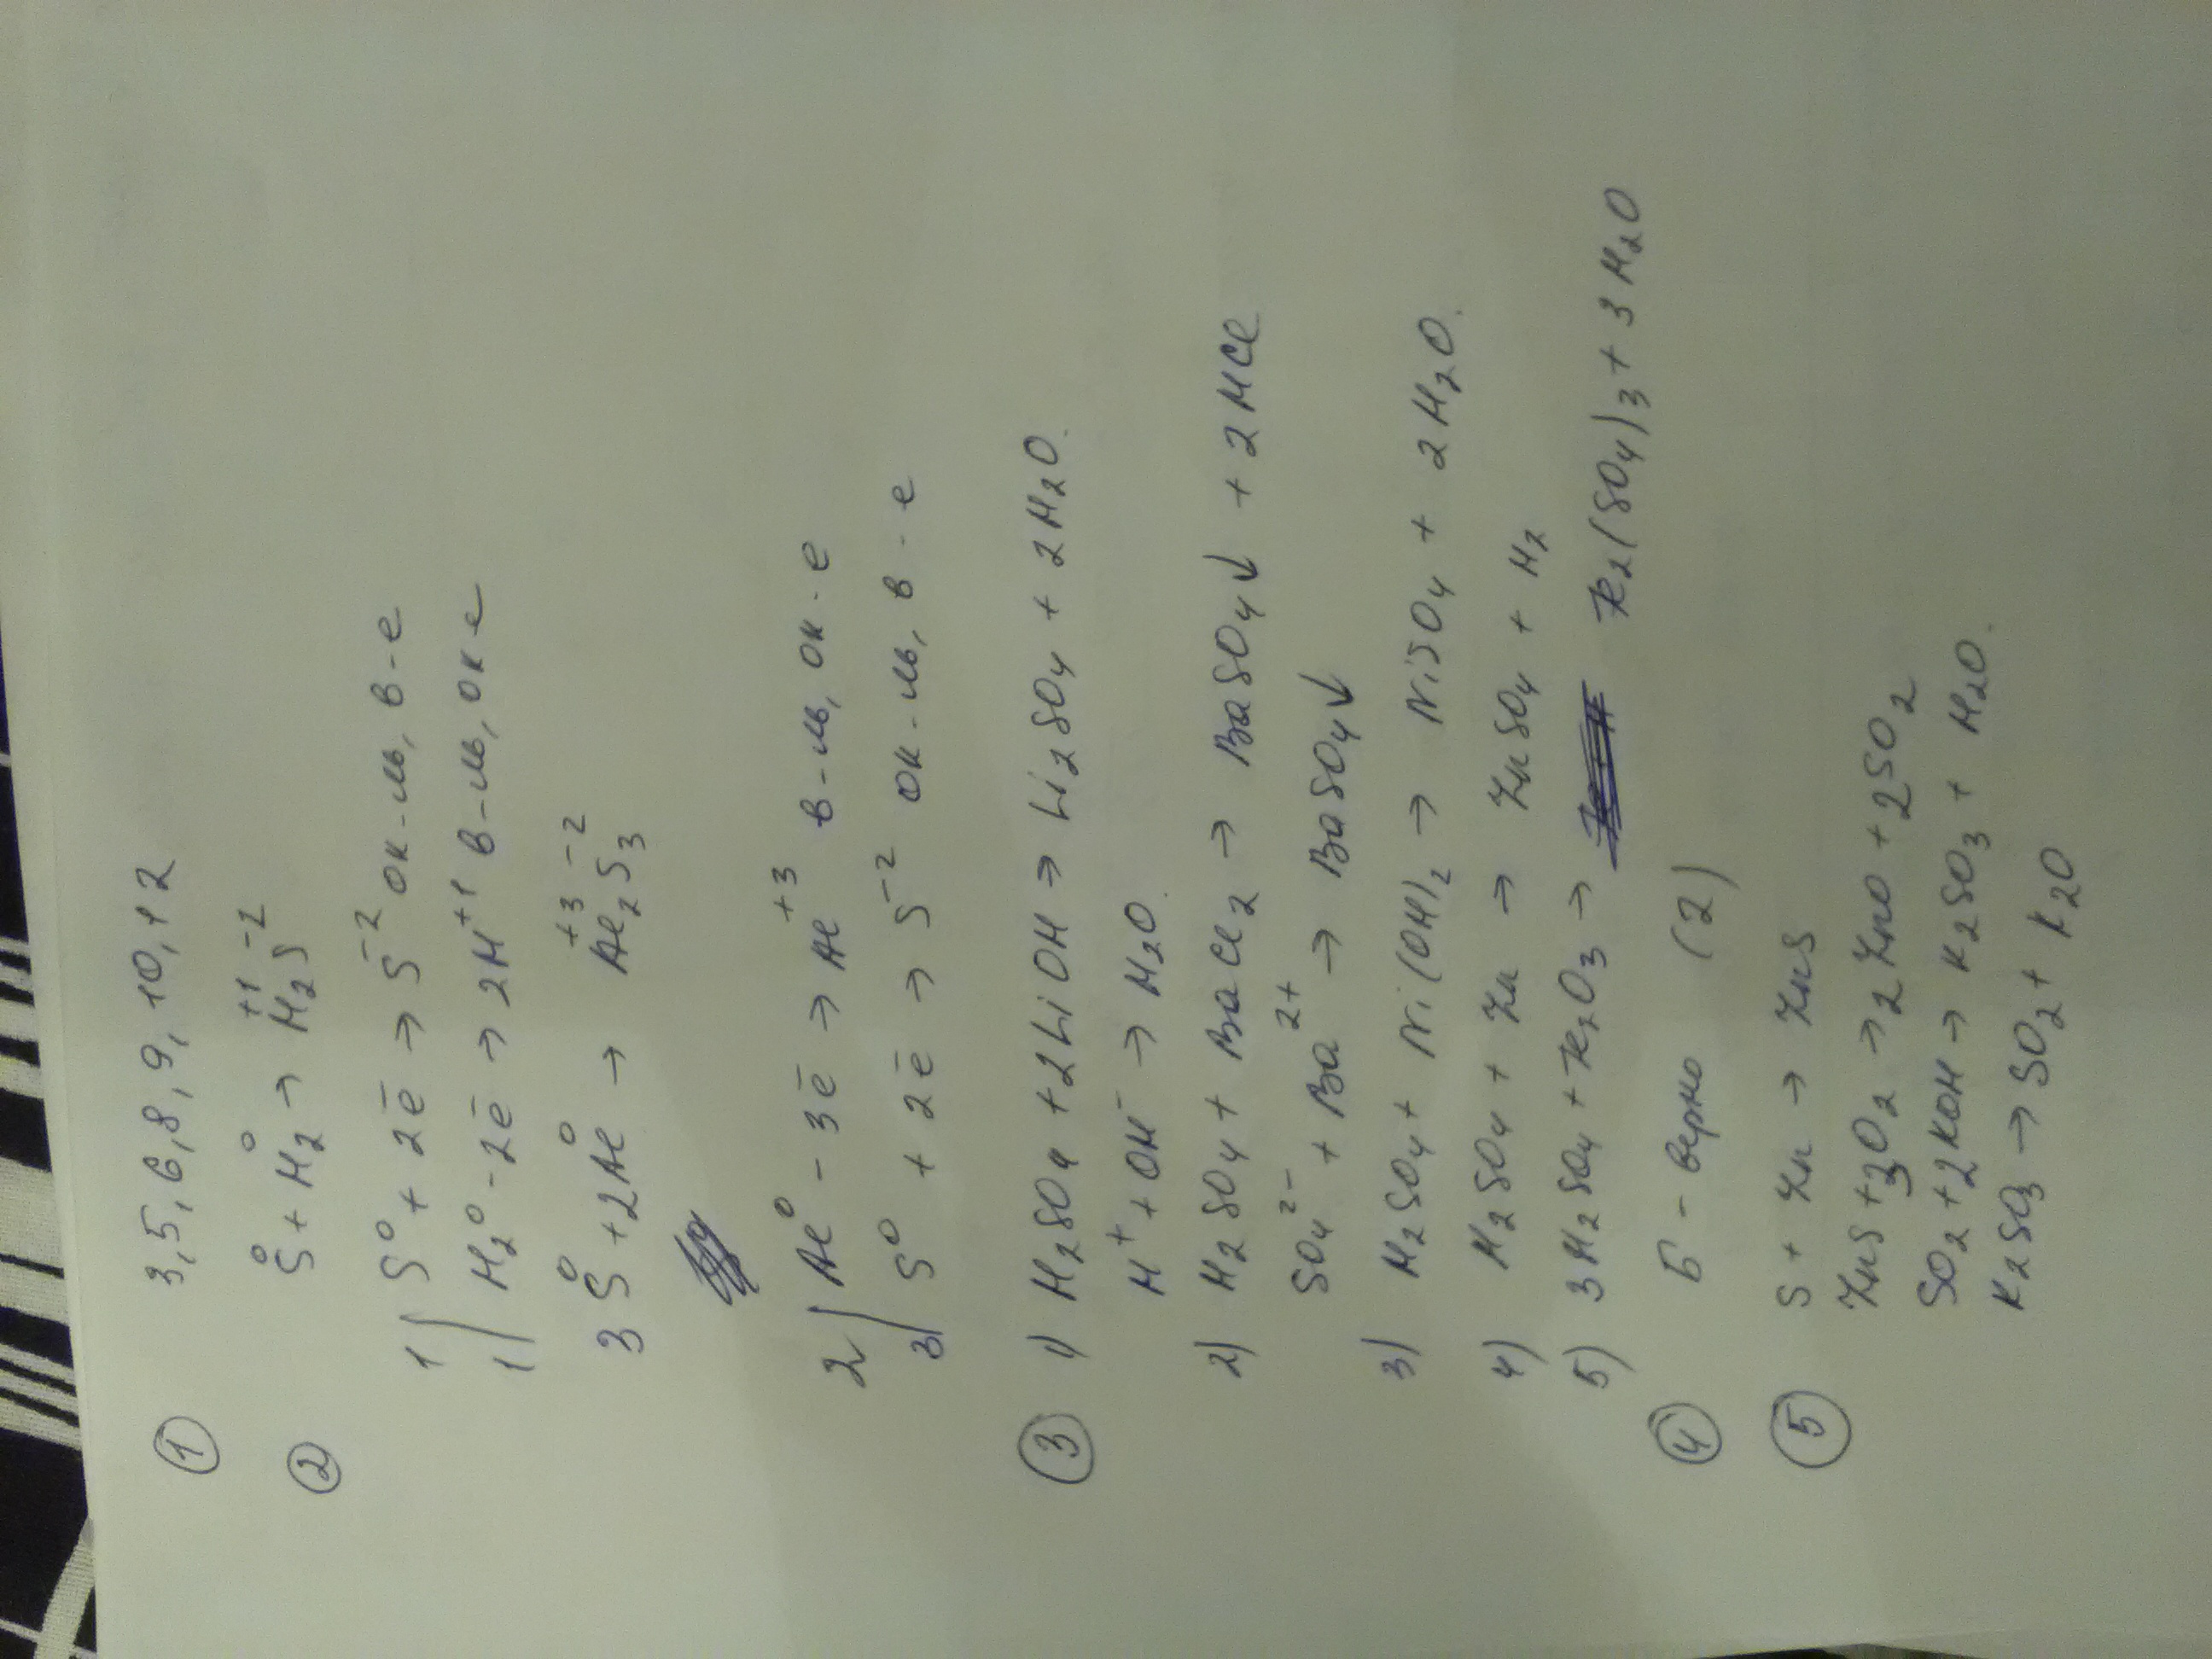 ① 3, 5, 6, 8, 9, 10, 12
② S⁰ + H₂⁰ → H₂⁺¹S⁻²
1 | S⁰ + 2ē → S⁻² ок-ль, в-е
1 | H₂⁰ - 2ē → 2H⁺¹ в-ль, ок-е
3S⁰ + 2Al⁰ → Al₂⁺³S₃⁻²
2 | Al⁰ - 3ē → Al⁺³ в-ль, ок-е
3 | S⁰ + 2ē → S⁻² ок-ль, в-е
③ 1) H₂SO₄ + 2LiOH → Li₂SO₄ + 2H₂O.
H⁺ + OH⁻ → H₂O.
2) H₂SO₄ + BaCl₂ → BaSO₄↓ + 2HCl
SO₄²⁻ + Ba²⁺ → BaSO₄↓
3) H₂SO₄ + Ni(OH)₂ → NiSO₄ + 2H₂O.
4) H₂SO₄ + Zn → ZnSO₄ + H₂
5) 3H₂SO₄ + Fe₂O₃ → Fe₂(SO₄)₃ + 3H₂O
④ Б - верно (2)
⑤ S + Zn → ZnS
ZnS + 3O₂ → 2ZnO + 2SO₂
SO₂ + 2KOH → K₂SO₃ + H₂O.
K₂SO₃ → SO₂ + K₂O